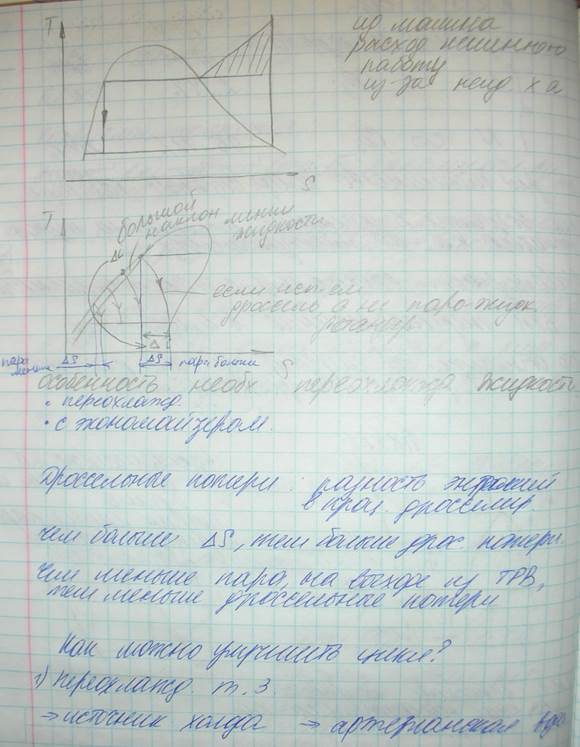 T
из машина
расход
работу
из-за
S
T
большой
наклон линии
жидкости
Δi
если
дроссель а не паро-жидк
Δ
пара
меньше
ΔS
ΔS
пара больше
S
особенность необх переохлажд жидкости
• переохлажд.
• с экономайзером.
Дроссельные потери: разность энтропий
в проц дросселир.
чем больше ΔS, тем больше дрос. потери
Чем меньше пара, на выходе из ТРВ,
тем меньше дроссельные потери
Как можно улучшить цикл?
1) переохлажд. т. 3
→ источник холда → артезианская вода